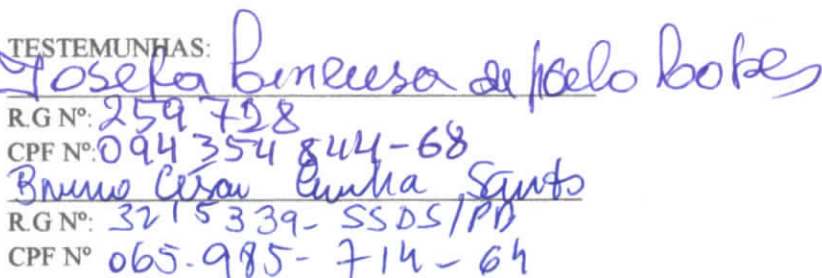 TESTEMUNHAS:
Josefa de Melo
R.G Nº: 259 728
CPF Nº: 094 354 844-68
Bruno César Cunha Santos
R.G Nº: 3215339- SSDS/PB
CPF Nº 065.985-714-64